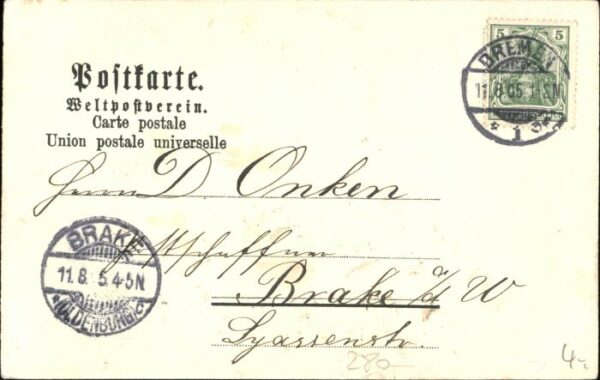 Postkarte.
Weltpostverein.
Carte postale
Union postale universelle
5 5
BREMEN
11.8.05 1
* 1
Herrn D. Onken
Brake a/d W
Lyassenstr.
BRAKE
11.8. 5.4-5N
* (OLDENBURG) c
280-
4.-